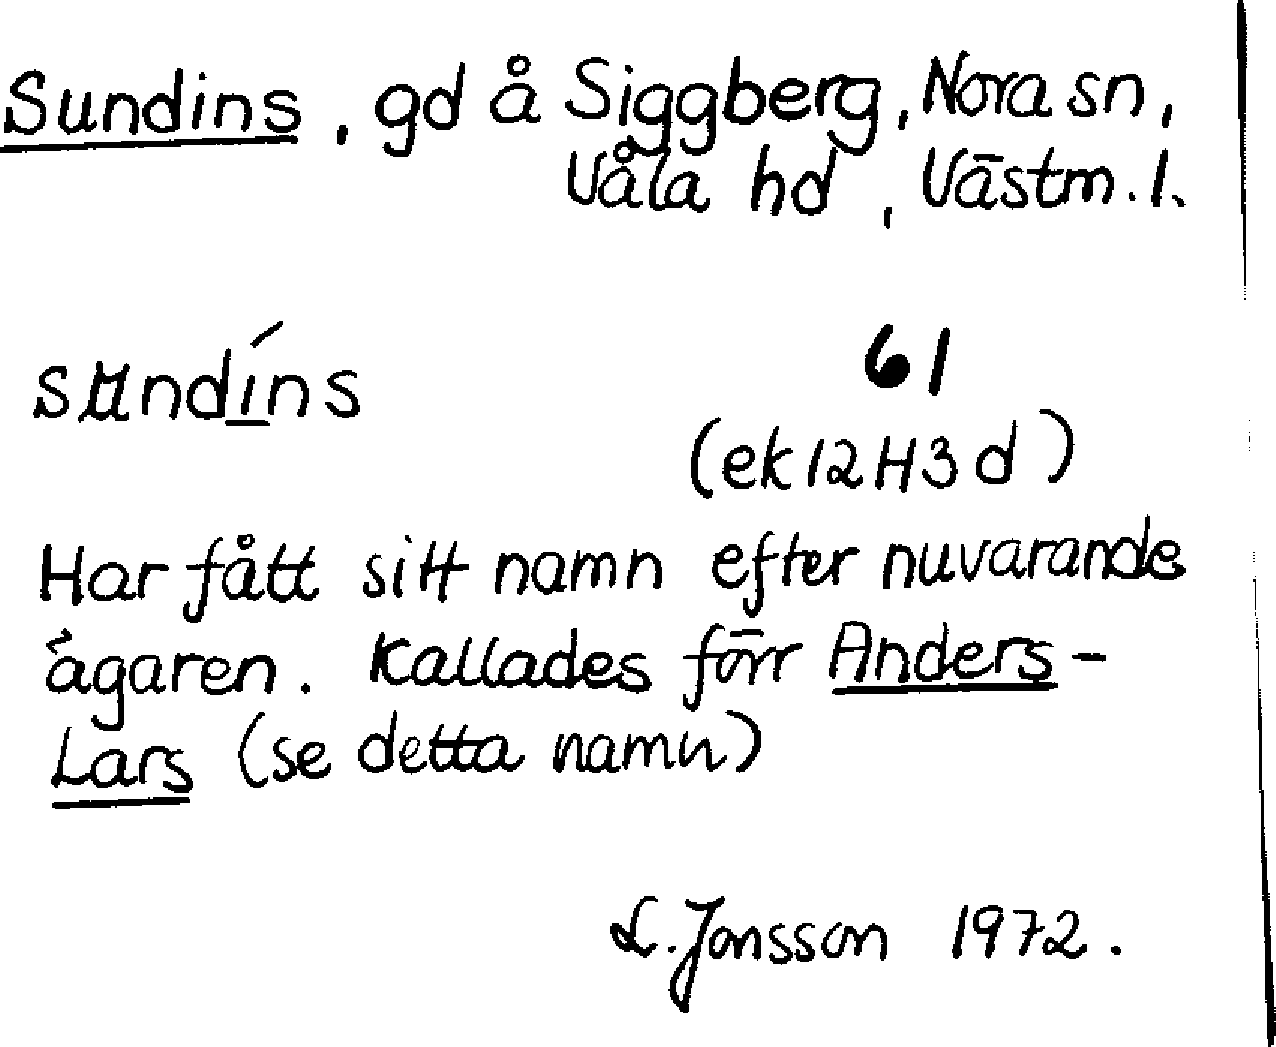 Sundins, gd å Siggberg, Nora sn,
Våla hd, Västm. l.
sundíns
61
(ek 12H3d)
Har fått sitt namn efter nuvarande
ägaren. Kallades förr Anders-
Lars (se detta namn)
L. Jonsson 1972.